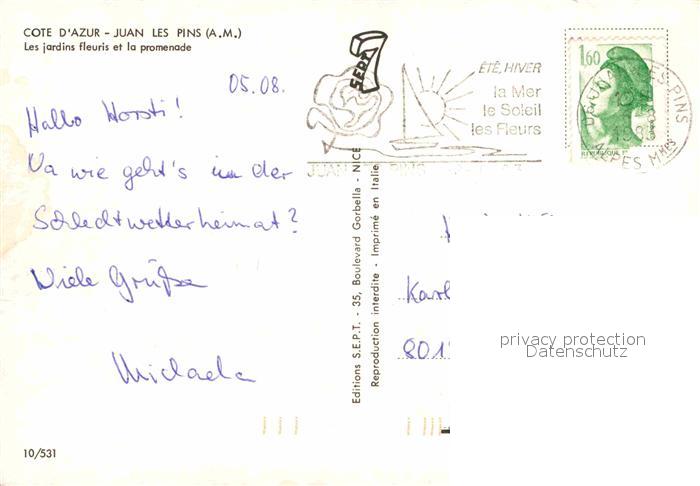 COTE D'AZUR - JUAN LES PINS (A.M.)
Les jardins fleuris et la promenade
05.08.
Hallo Horsti!
Na wie geht's in der
Schlechtwetterheimat?
Viele Grüße
Michaela
10/531
Editions S.E.P.T. - 35, Boulevard Gorbella - NICE
Reproduction interdite - Imprimé en Italie
SEPT
ÉTÉ, HIVER
la Mer
le Soleil
les Fleurs
JUAN LES PINS
1,60
REPUBLIQUE
JUAN LES PINS
ALPES Mmes
Karl
801
privacy protection
Datenschutz